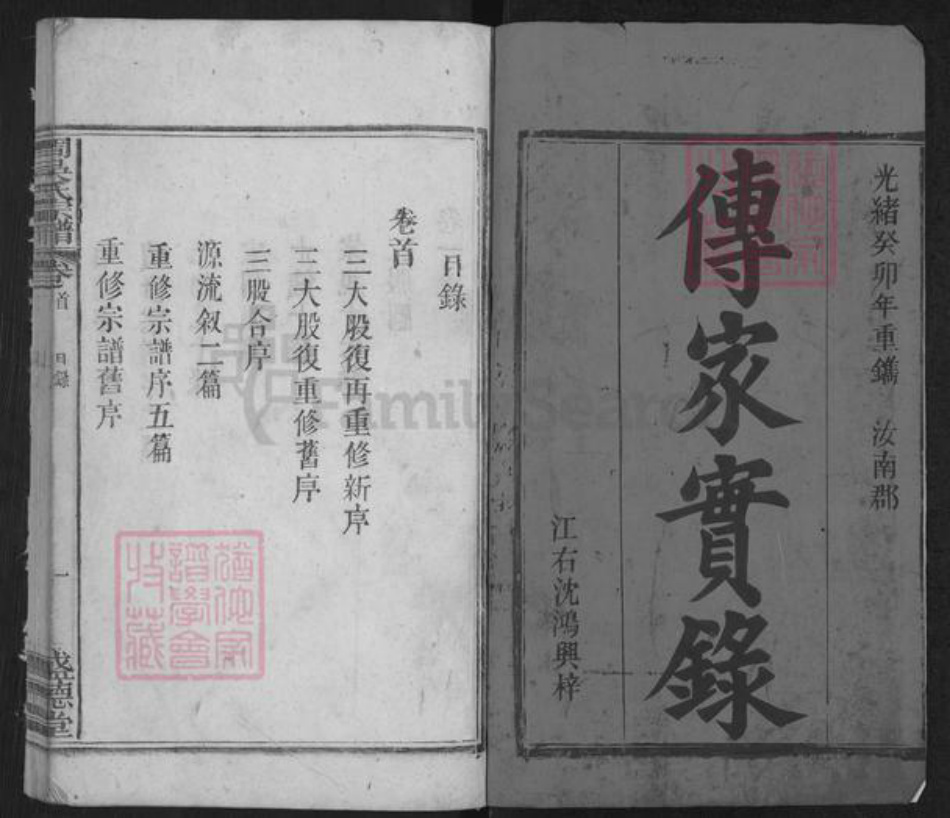 光緒癸卯年重鐫 汝南郡
傳家實錄
江右沈鴻興梓
目錄
卷首
三大股復再重修新序
三大股復重修舊序
三股合序
源流敘二篇
重修宗譜序五篇
重修宗譜舊序
氏宗譜 卷首 目錄 一 盛德堂
猶他家譜學會收藏
FamilySearch